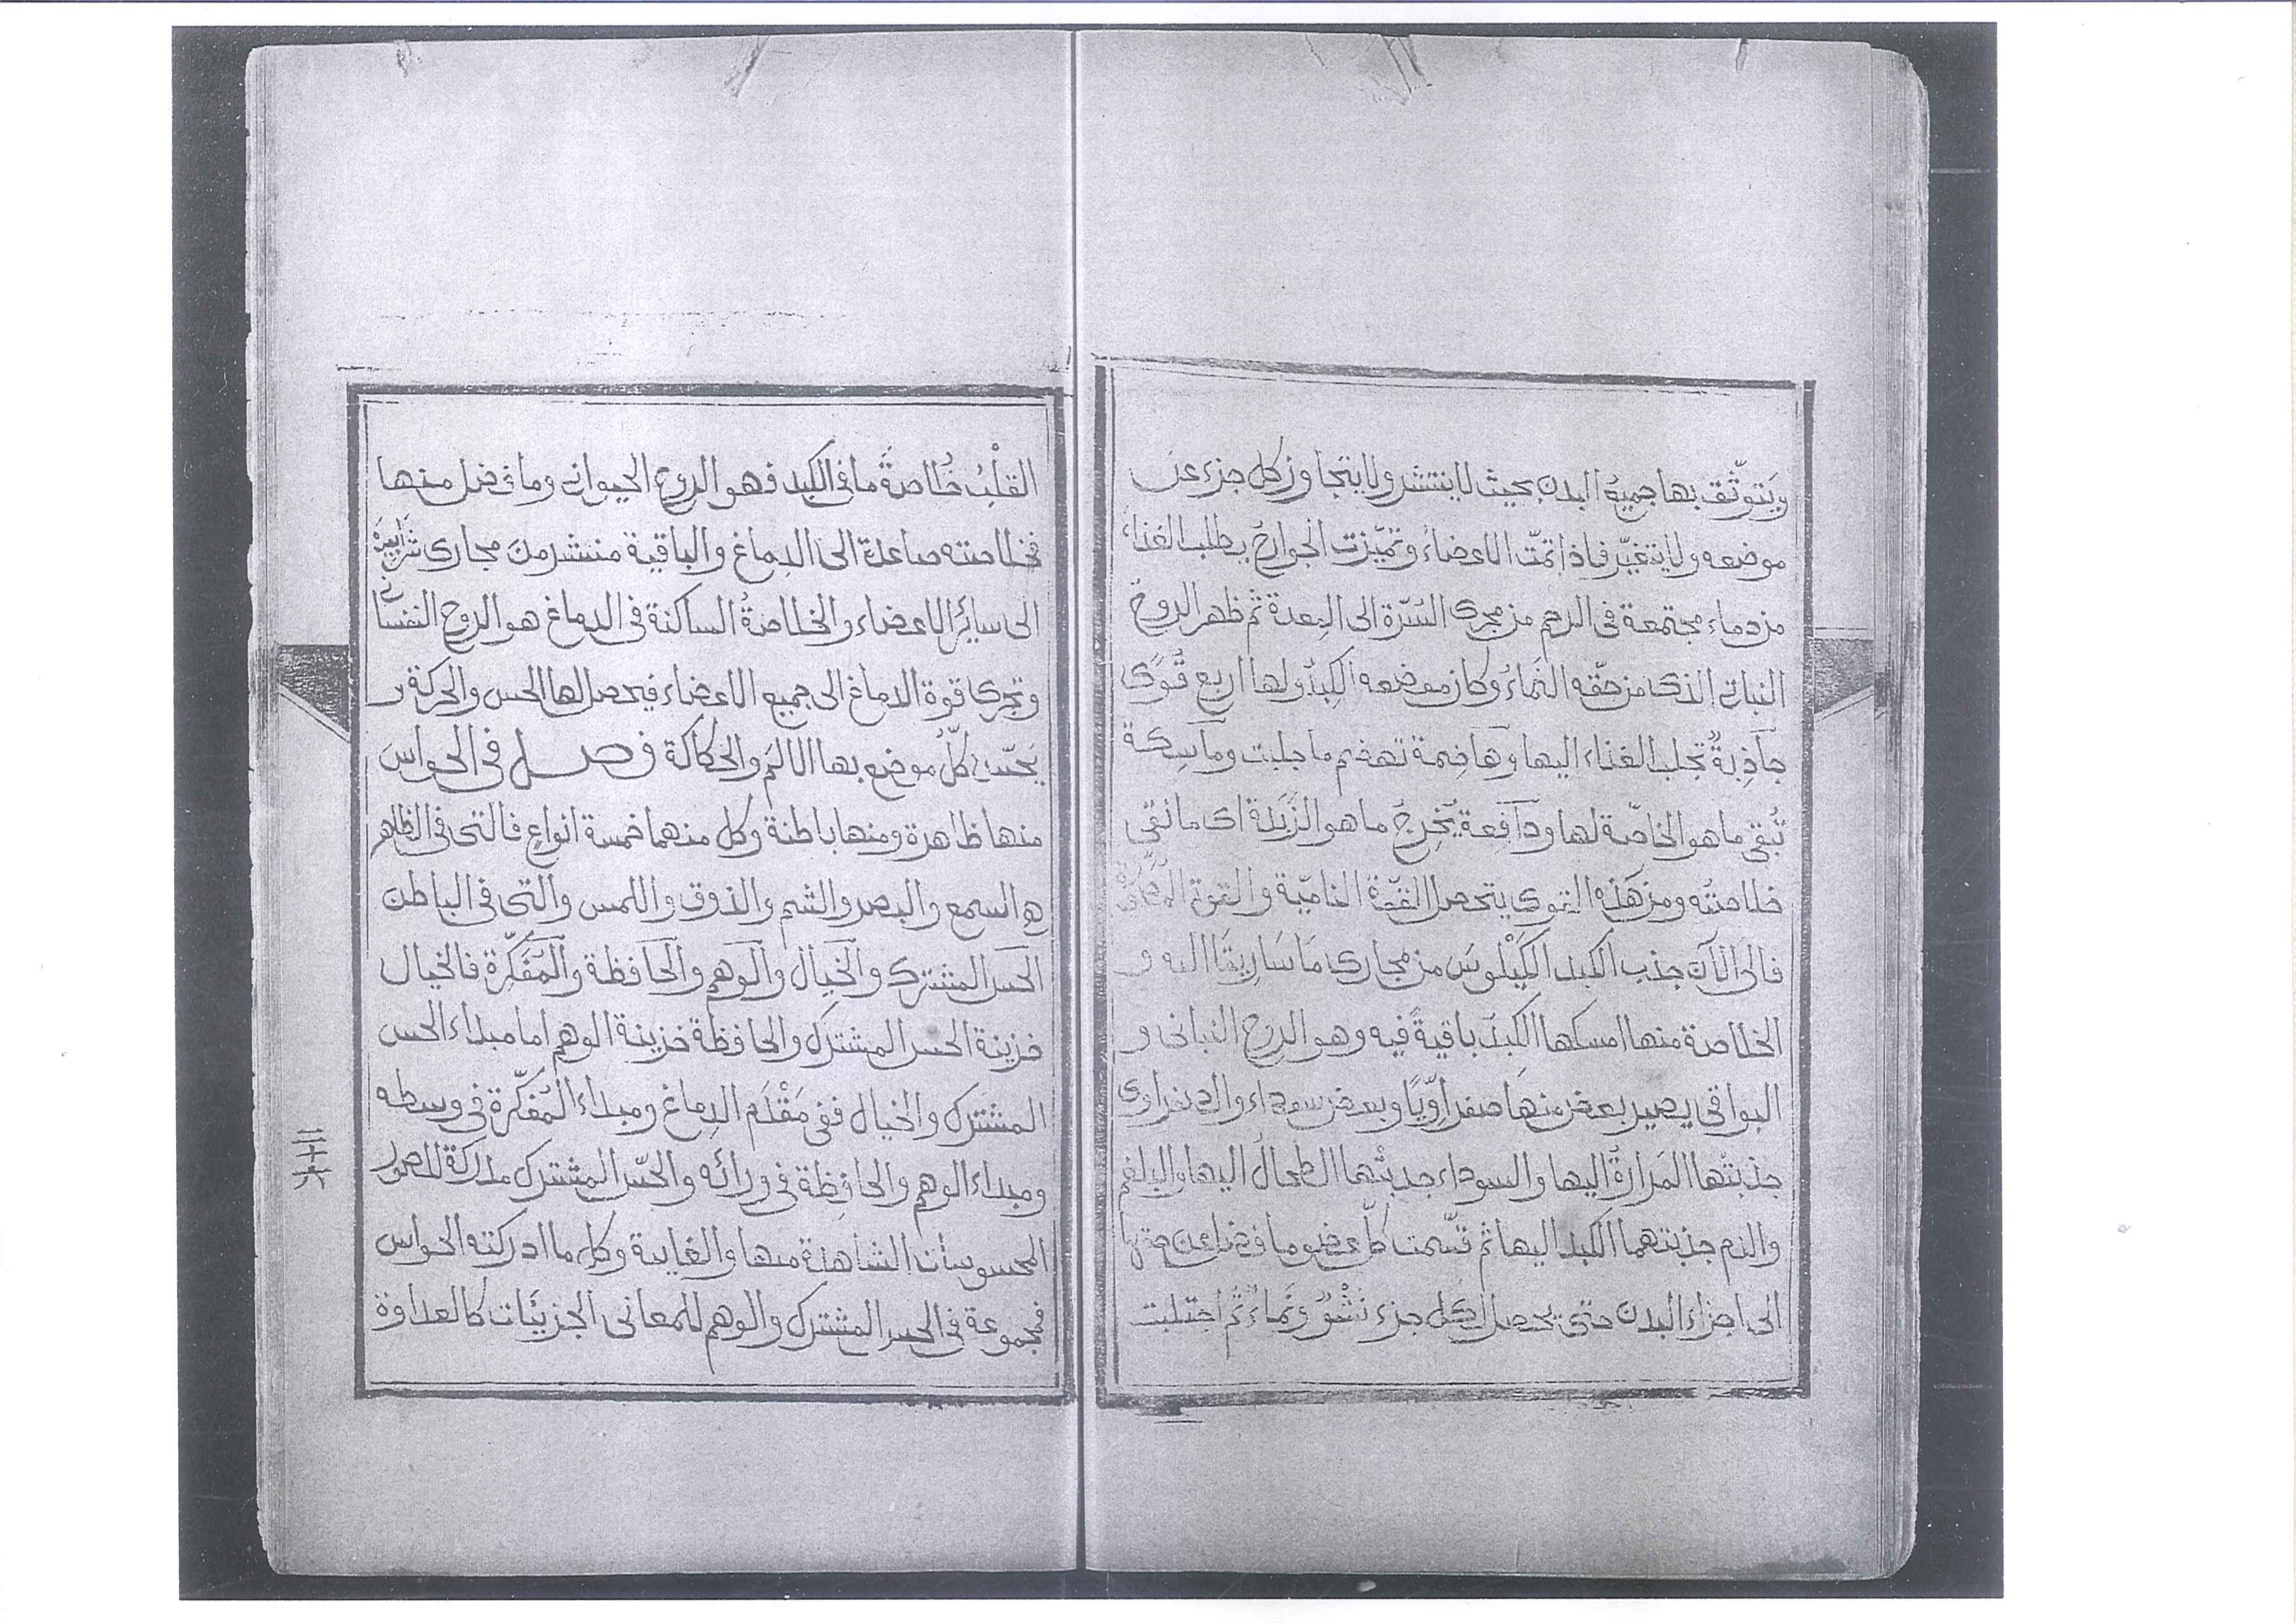 ويتوثّق بها جميع البدن بحيث لا ينتشر ولا يتجاوز كل جزء عن
موضعه ولا يتغيّر فاذا تمّت الاعضاء وتميّزت الجوارح يطلب الغذاء
من دماء مجتمعة فى الرحم من مجرى السّرّة الى المعدة ثم ظهر الروح
النباتى الذى من حقّه النماء وكان موضعه الكبد ولها اربع قوى
جاذبة تجلب الغذاء اليها وهاضمة تهضم ما جلبت وماسكة
تبقى ما هو الخاصّة لها ودافعة يخرج ما هو الزبدة اى ما نقى
خلاصته ومن هذه القوى يتحصل القوّة النامية والقوة
فالى الآن جذب الكبد الكيلوس من مجارى ماساريقا اليه و
الخلاصة منها امسكها الكبد باقية فيه وهو الروح النباتى و
البواقى يصير بعض منها صفراويّا وبعض سوداء والصفراوى
جذبتها المرارة اليها والسوداء جذبتها الطحال اليها والبلغم
والدم جذبتهما الكبد اليها ثم قسّمت كلّ عضو وما فضل عن
الى اجزاء البدن حتى يحصل لكل جزء نشو ونماء ثم اجتلبت
القلب خلاصة ما فى الكبد فهو الروح الحيوانى وما فضل منها
فخلاصته صاعدة الى الدماغ والباقية منتشر من مجارى
الى سائر الاعضاء والخلاصة الساكنة فى الدماغ هو الروح النفسانى
وتجرى قوة الدماغ الى جميع الاعضاء فيحصل لها الحس والحركة و
كلّ موضع بها الالم والحكاكة فصل فى الحواس
منها ظاهرة ومنها باطنة وكل منهما خمسة انواع فالتى فى الظاهر
هو السمع والبصر والشم والذوق واللمس والتى فى الباطن
الحس المشترك والخيال والوهم والحافظة والمفكّرة فالخيال
خزينة الحس المشترك والحافظة خزينة الوهم اما مبداء الحس
المشترك والخيال ففى مقدم الدماغ ومبداء المفكّرة فى وسطه
ومبداء الوهم والحافظة فى ورائه والحسّ المشترك مدركة للصور
المحسوسات الشاهدة منها والغايبة وكل ما ادركته الحواس
فمجموعة فى الحس المشترك والوهم للمعانى الجزئيات كالعداوة